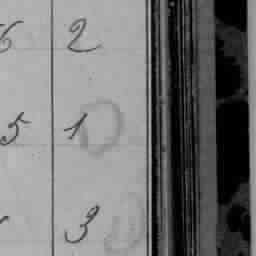 6 2
5 1
3